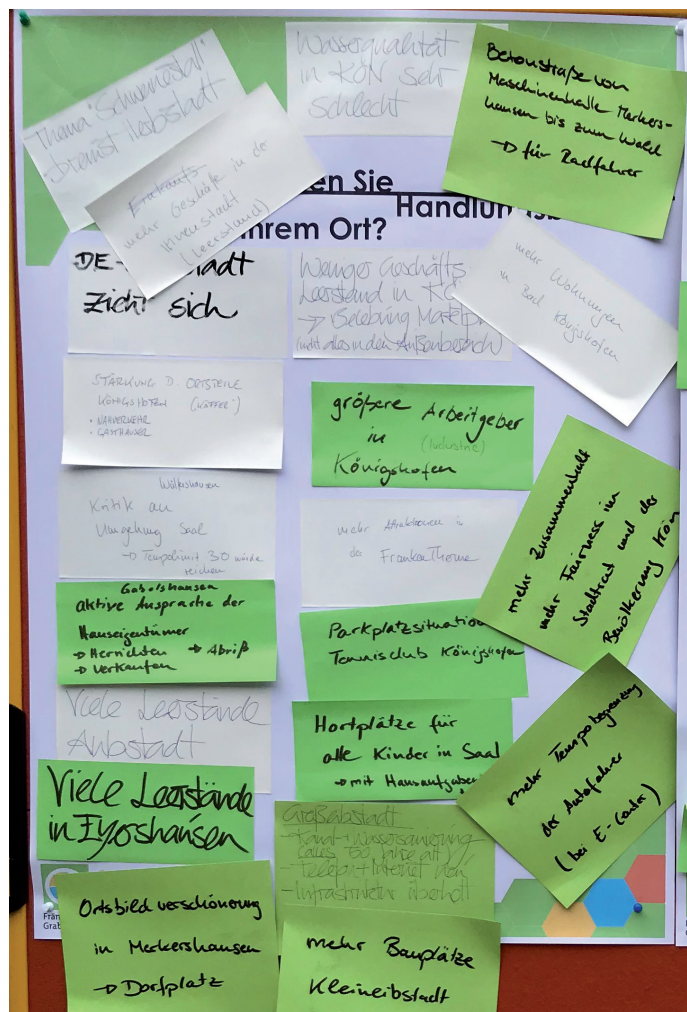 Thema "Schweinestall"
Dienst Ilebstadt
Wasserqualität
in KÖN sehr
schlecht
Betonstraße von
Maschinenhalle Merkers-
hausen bis zum Wald
→ für Radfahrer
mehr Geschäfte in der
Innenstadt
(Leerstand)
en Sie
Handlun
hrem Ort?
DE-
tadt
Zieht sich
Weniger Geschäfts
Leerstand in KÖ
→ Belebung Marktpl
(nicht alles in den Außenbereich)
mehr Wohnungen
in Bad Königshofen
STÄRKUNG D. ORTSTEILE
KÖNIGSHOFEN
• NAHVERKEHR
• GASTHÄUSER
größere Arbeitgeber
in (Industrie)
Königshofen
Wülfershausen
Kritik an
Umgehung Saal
→ Tempolimit 30 würde
reichen
mehr Attraktionen in
der FrankenTherme
mehr Zusammenhalt
mehr Fairness im
Stadtrat und der
Bevölkerung Kön
Gabolshausen
aktive Ansprache der
Hauseigentümer
→ Herrichten → Abriß
→ Verkaufen
Parkplatzsituation
Tennisclub Königshofen
Viele Leerstände
Aubstadt
Hortplätze für
alle Kinder in Saal
→ mit Hausaufgaben
mehr Tempobegrenzung
der Autofahrer
(bei E-Center)
Viele Leerstände
in Eyershausen
Großeibstadt
- Kanal + Wassersanierung
(alles 50 Jahre alt)
- Telefon + Internet
- Infrastruktur überholt
Frän
Grab
Ortsbildverschönerung
in Merkershausen
→ Dorfplatz
mehr Bauplätze
Kleineibstadt